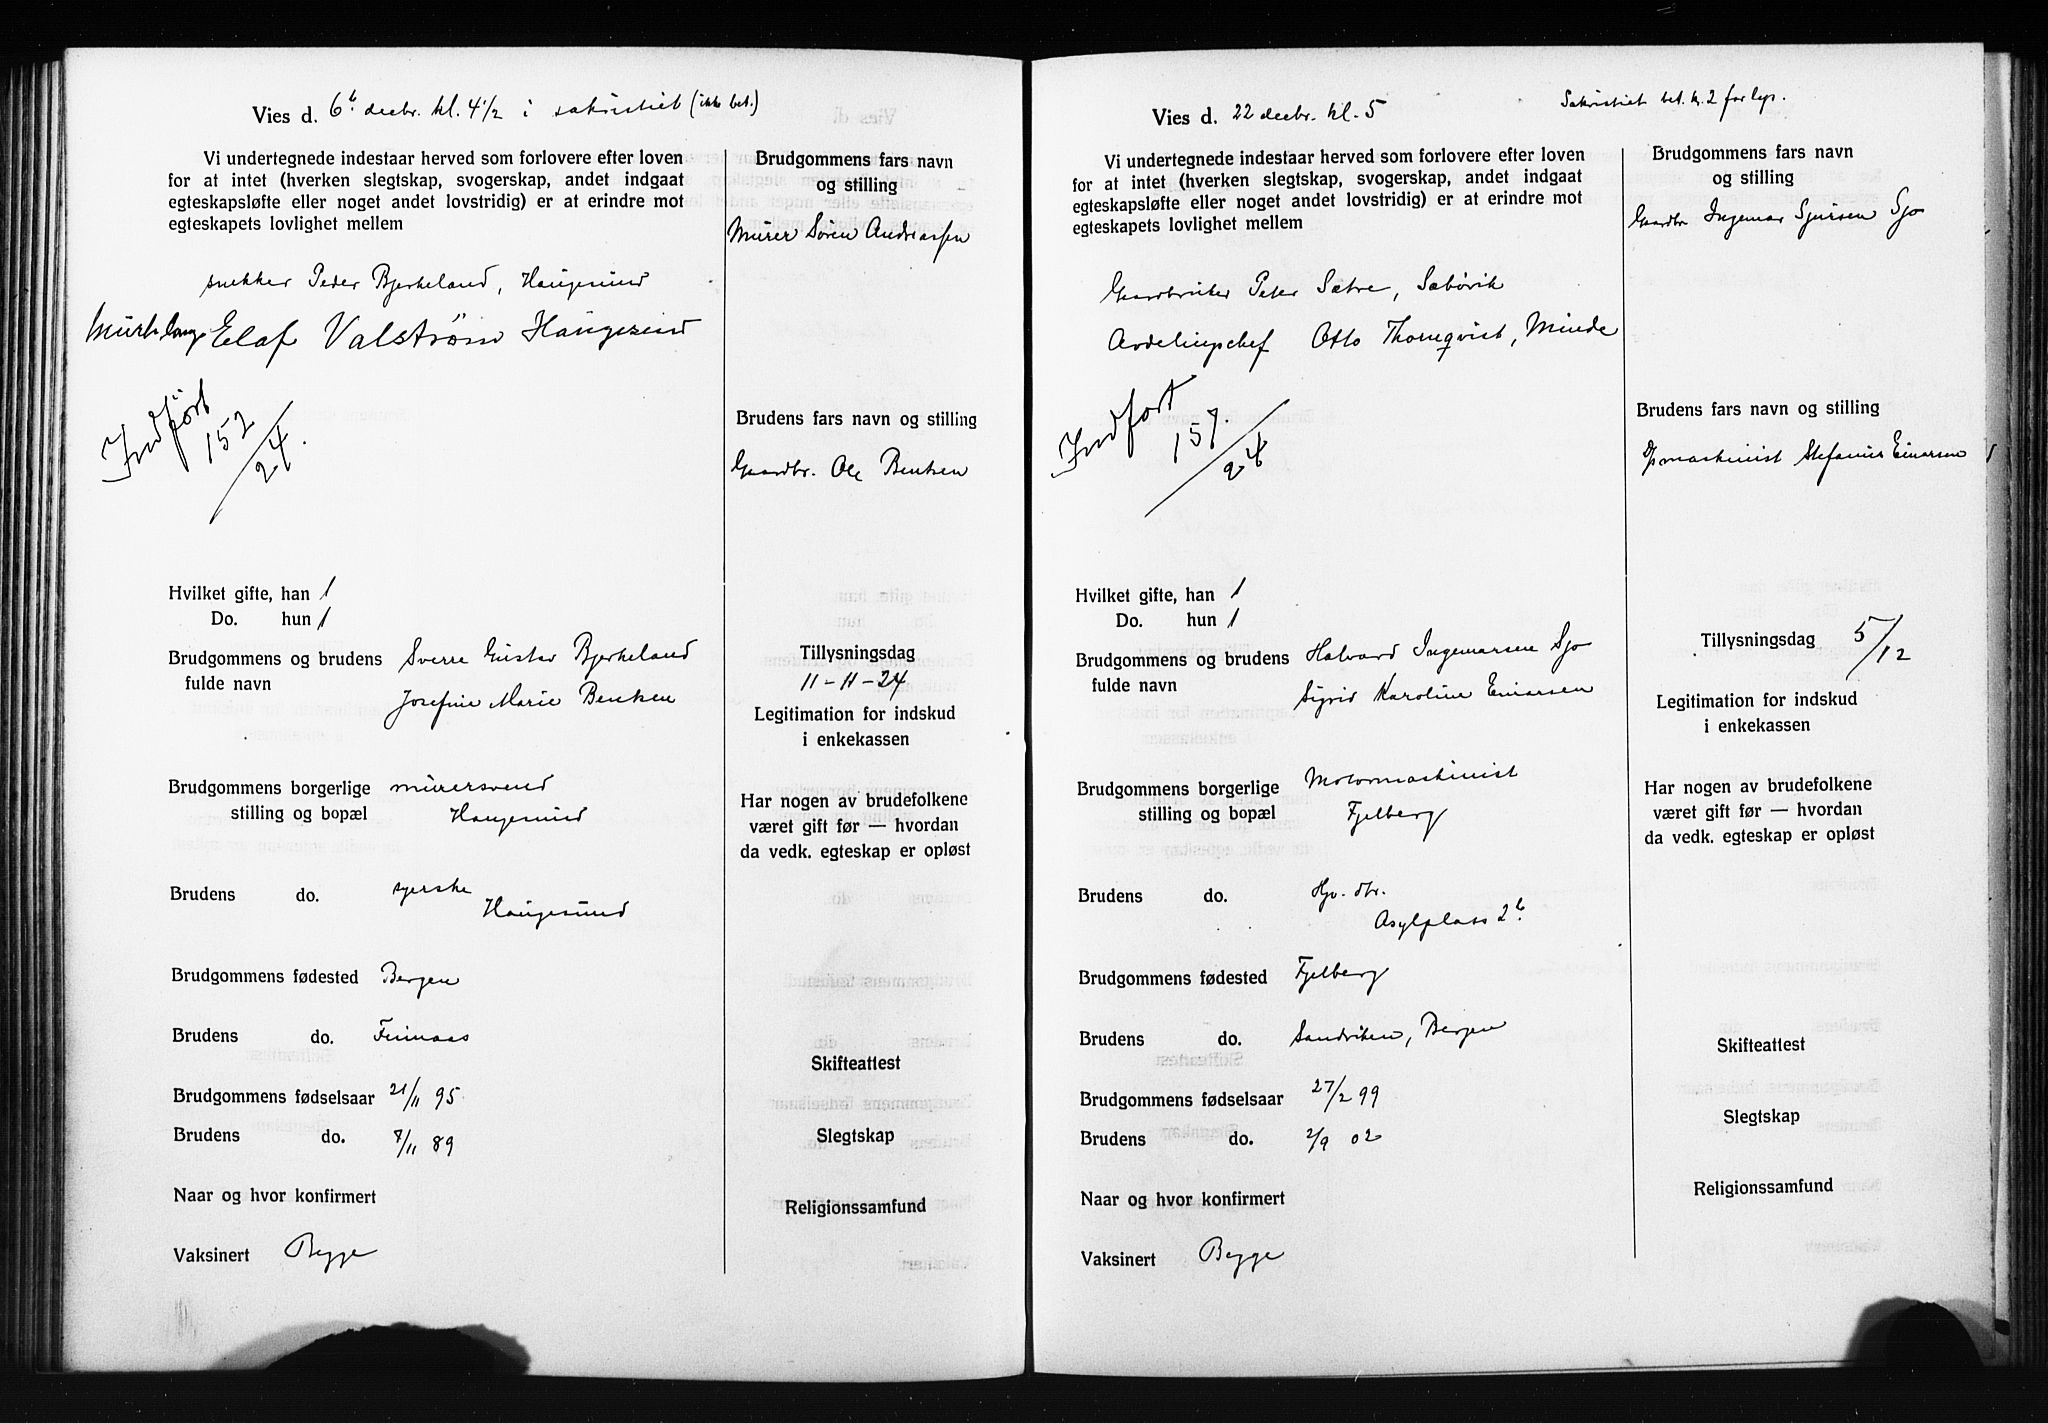 Vies d. 6te decbr. kl. 4 1/2 i sakristiet (ikke bet.)
Vi undertegnede indestaar herved som forlovere efter loven
for at intet (hverken slegtskap, svogerskap, andet indgaat
egteskapsløfte eller noget andet lovstridig) er at erindre mot
egteskapets lovlighet mellem
snekker Peder Bjerkeland, Haugesund
Elaf Valstrøm Haugesund
Indført
152
/24.
Hvilket gifte, han 1
Do. hun 1
Brudgommens og brudens Sverre Gustav Bjerkeland
fulde navn Josefine Marie Bentsen
Brudgommens borgerlige murersvend
stilling og bopæl Haugesund
Brudens do. syerske
Haugesund
Brudgommens fødested Bergen
Brudens do. Finnaas
Brudgommens fødselsaar 21/11 95.
Brudens do. 7/11 89
Naar og hvor konfirmert
Vaksinert Begge
Brudgommens fars navn
og stilling
Murer Søren Andreassen
Brudens fars navn og stilling
Gaardbr. Ole Bentsen
Tillysningsdag
11-11-24
Legitimation for indskud
i enkekassen
Har nogen av brudefolkene
været gift før — hvordan
da vedk. egteskap er opløst
Skifteattest
Slegtskap
Religionssamfund
Vies d. 22 decbr. kl. 5 Sakristiet bet. kr. 2 for lys.
Vi undertegnede indestaar herved som forlovere efter loven
for at intet (hverken slegtskap, svogerskap, andet indgaat
egteskapsløfte eller noget andet lovstridig) er at erindre mot
egteskapets lovlighet mellem
Gaardbruker Peter Sætre, Sæbøvik
Avdelingschef Otto Thornqvist, Minde
Indført
157.
/24
Hvilket gifte, han 1
Do. hun 1
Brudgommens og brudens Halvard Ingemarsen Sjo
fulde navn Sigrid Karoline Einarsen
Brudgommens borgerlige Motormaskinist
stilling og bopæl Fjelberg
Brudens do. Hjv. dtr.
Asylplass 2b.
Brudgommens fødested Fjelberg
Brudens do. Sandviken, Bergen
Brudgommens fødselsaar 27/2 99
Brudens do. 2/9 02
Naar og hvor konfirmert
Vaksinert Begge
Brudgommens fars navn
og stilling
Gaardbr Ingemar Sjursen Sjo
Brudens fars navn og stilling
maskinist Stefanus Einarsen
Tillysningsdag 5/12
Legitimation for indskud
i enkekassen
Har nogen av brudefolkene
været gift før — hvordan
da vedk. egteskap er opløst
Skifteattest
Slegtskap
Religionssamfund